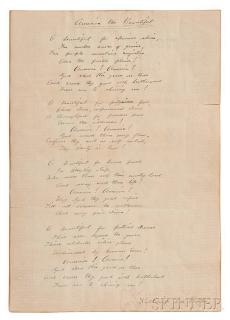 America the Beautiful
O beautiful for spacious skies,
For amber waves of grain,
For purple mountain majesties
Above the fruited plain!
America! America!
God shed His grace on thee
And crown thy good with brotherhood
From sea to shining sea!
O beautiful for pilgrim feet,
Whose stern, impassioned stress
A thoroughfare for freedom beat
Across the wilderness!
America! America!
God mend thine every flaw,
Confirm thy soul in self-control,
Thy liberty in law!
O beautiful for heroes proved
In liberating strife,
Who more than self their country loved
And mercy more than life!
America! America!
May God thy gold refine
Till all success be nobleness
And every gain divine!
O beautiful for patriot dream
That sees beyond the years
Thine alabaster cities gleam
Undimmed by human tears!
America! America!
God shed His grace on thee
And crown thy good with brotherhood
From sea to shining sea!
SKINNER